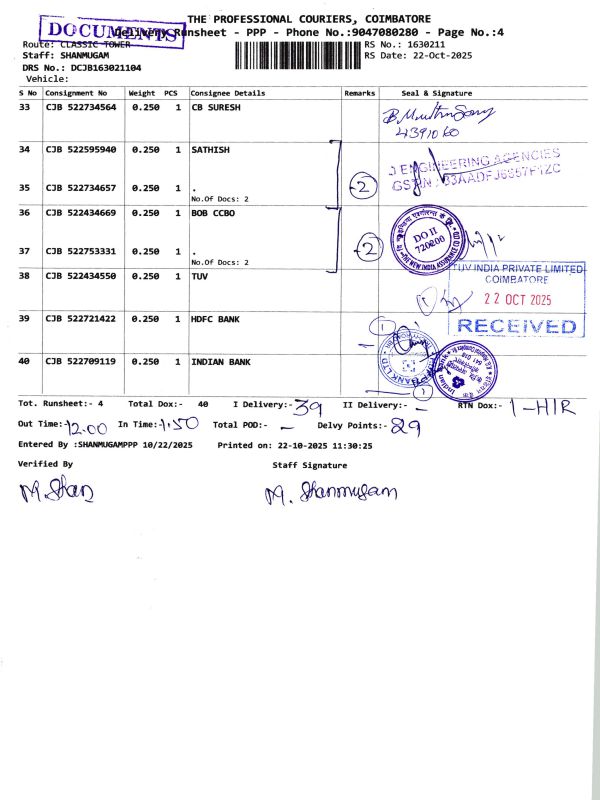 THE PROFESSIONAL COURIERS, COIMBATORE
DOCUMENTS
Delivery Runsheet - PPP - Phone No.:9047080280 - Page No.:4
Route: CLASSIC TOWER
RS No.: 1630211
Staff: SHANMUGAM
RS Date: 22-Oct-2025
DRS No.: DCJB163021104
Vehicle:
S No Consignment No Weight PCS Consignee Details Remarks Seal & Signature
33 CJB 522734564 0.250 1 CB SURESH
4391060
34 CJB 522595940 0.250 1 SATHISH
ENGINEERING AGENCIES
35 CJB 522734657 0.250 1 .
No.Of Docs: 2
-2
36 CJB 522434669 0.250 1 BOB CCBO
DO II
720800
37 CJB 522753331 0.250 1 .
No.Of Docs: 2
-2
38 CJB 522434550 0.250 1 TUV
TUV INDIA PRIVATE LIMITED
COIMBATORE
22 OCT 2025
RECEIVED
39 CJB 522721422 0.250 1 HDFC BANK
1
40 CJB 522709119 0.250 1 INDIAN BANK
1
Tot. Runsheet:- 4 Total Dox:- 40 I Delivery:- 39 II Delivery:- - RTN Dox:- 1-HIR
Out Time:- 12.00 In Time:- 1.50 Total POD:- - Delvy Points:- 29
Entered By :SHANMUGAMPPP 10/22/2025 Printed on: 22-10-2025 11:30:25
Verified By Staff Signature
M. Shan M. Shanmugam